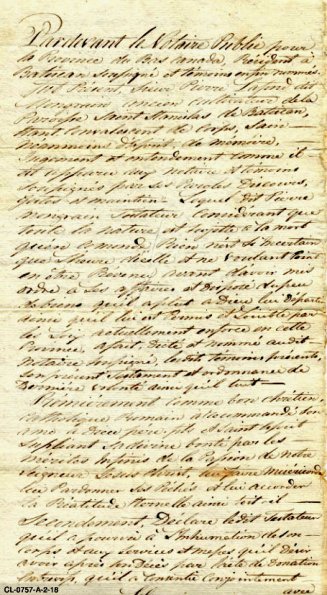 Pardevant le Notaire Public pour
la Province du Bas Canada, Résidant à
Batiscan Soussigné et témoins enfin nommés
fut Présent, Sieur Pierre
Mongrain ancien cultivateur de la
Paroisse Saint Stanislas de Batiscan,
étant Convalescent de Corps, Sain
néanmoins d'Esprit de mémoire,
Jugement et entendement comme il
est apparu aux notaire et témoins
soussignés par ses Paroles Discours,
gestes et maintien - Lequel dit Pierre
Mongrain Testateur Considérant que
toute la nature est sujette à la mort
qu'en ce monde Rien n'est si incertain
que l'heure d'icelle et ne voulant point
en être Prévenu avant d'avoir mis
ordre à ses affaires et disposé du peu
de biens qu'il a plut à Dieu lui départir
ainsi qu'il lui est Permis et Loisible par
la Loy actuellement en force en cette
Province, a fait, dicté et nommé au dit
notaire soussigné, les dits témoins présents,
son présent Testament et ordonnance de
Dernière volonté ainsi qu'il suit
Premièrement comme bon chrétien,
Catholique Romain a recommandé son
âme à Dieu père, fils et Saint Esprit
Supliant Sa divine bonté par les
mérites infinis de la Passion de notre
Seigneur Jésus Christ,
lui Pardonner Ses Péchés et lui accorder
la Béatitude Eternelle ainsi soit-il -
Secondement, Déclare le dit Testateur
qu'il a pourvu à l'inhumation de son
corps et aux services et messes qu'il devoit
avoir après son Décès par l'acte de Donation
qu'il a Consentie Conjointement
avec
CL-0757-A-2-18